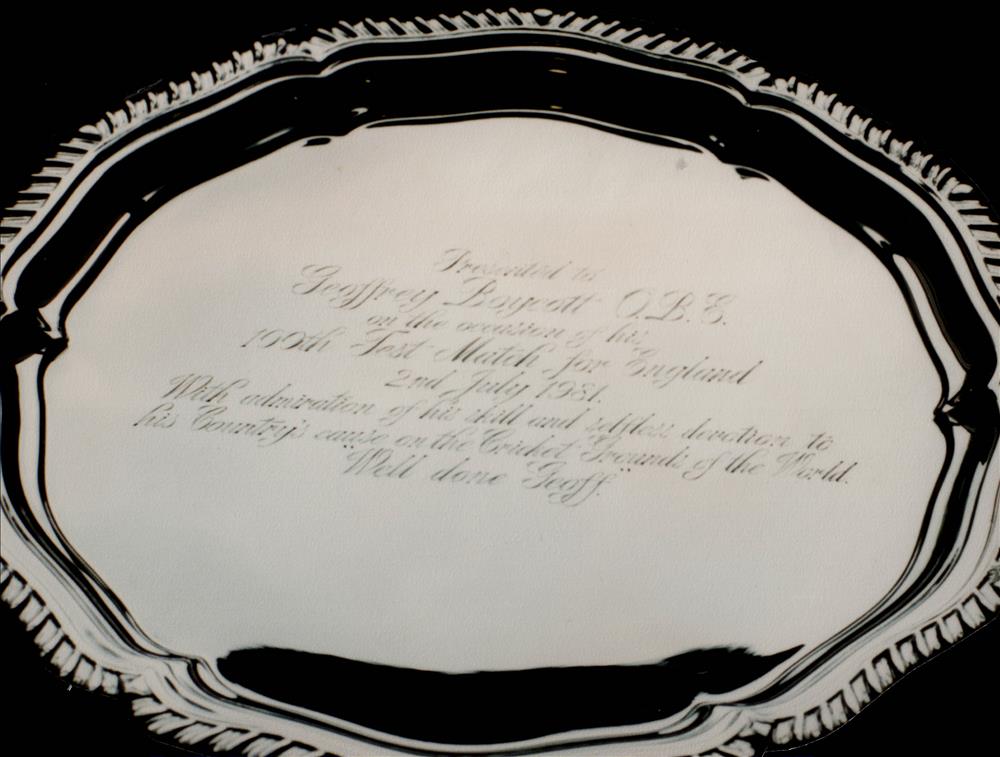 Presented to
Geoffrey Boycott O.B.E.
on the occasion of his
100th Test Match for England
2nd July 1981.
With admiration of his skill and selfless devotion to
his Country's cause on the Cricket Grounds of the World.
"Well done Geoff."